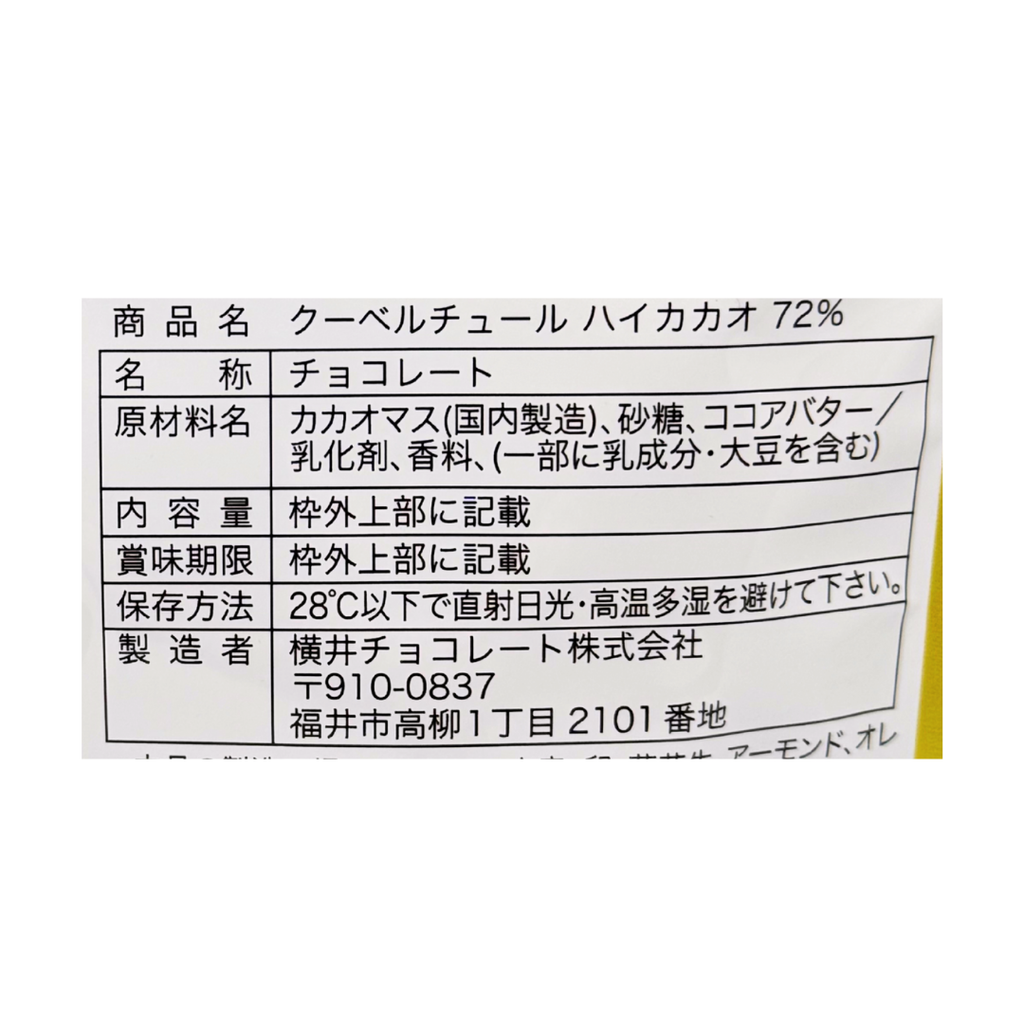 商品名 クーベルチュール ハイカカオ 72%
名称 チョコレート
原材料名 カカオマス(国内製造)、砂糖、ココアバター/
乳化剤、香料、(一部に乳成分・大豆を含む)
内容量 枠外上部に記載
賞味期限 枠外上部に記載
保存方法 28℃以下で直射日光・高温多湿を避けて下さい。
製造者 横井チョコレート株式会社
〒910-0837
福井市高柳1丁目2101番地
アーモンド、オレ